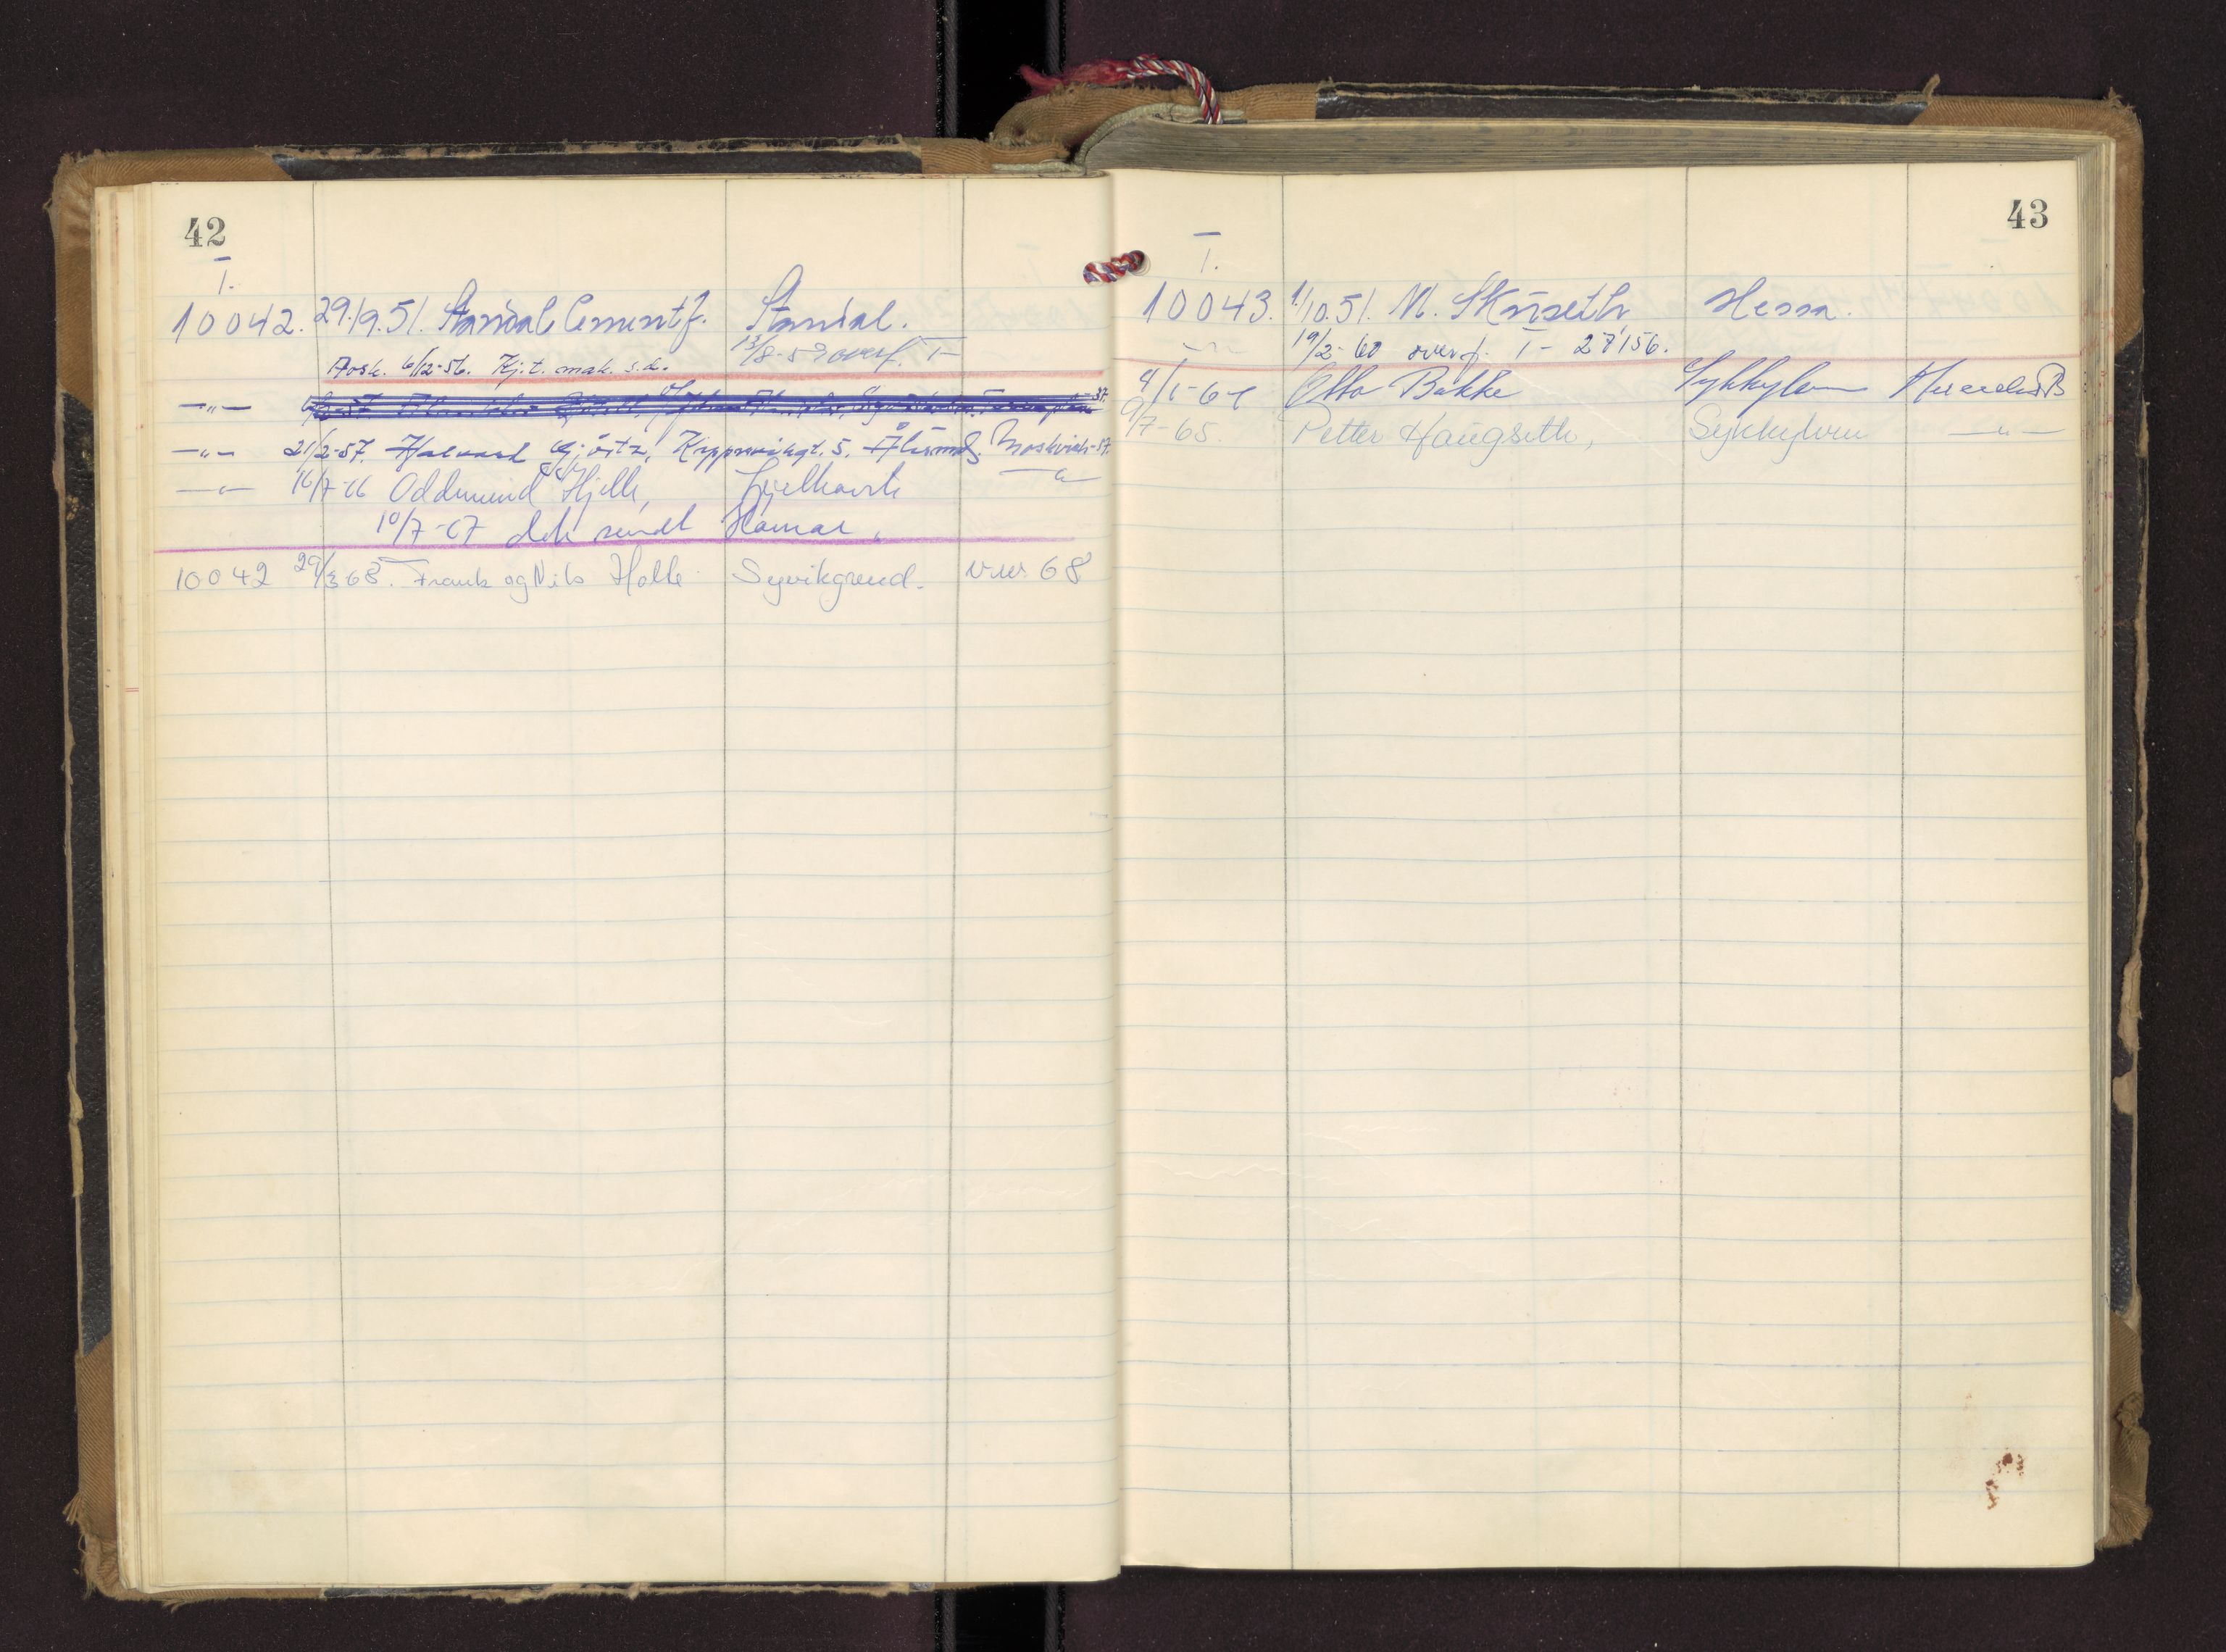 42
I.
10042. 29./9.51. Standal Cementf. Standal.
13/8-59 overf. T-
Avsk. 6/12-56. Kj.t. mak. s.d.
—"—
—"— 21/2-57. Halvard Gjørtz, Kipperviksgt. 5. Ålesund. Moskvich-57.
—"— 16/7-66 Oddmund Hjelle, —"—
10/7-67 sendt Hamar.
10042 29/3 68. Frank og Nils Holle Syvikgrend. V.W. 68
43
I.
10043. 1./10.51. M. Skuseth Hessa.
19/2-60 overf. T- 27156.
4/1-61 Otto Bakke Sykkylven Mercedes B
9/7-65. Petter Haugseth, Sykkylven —"—